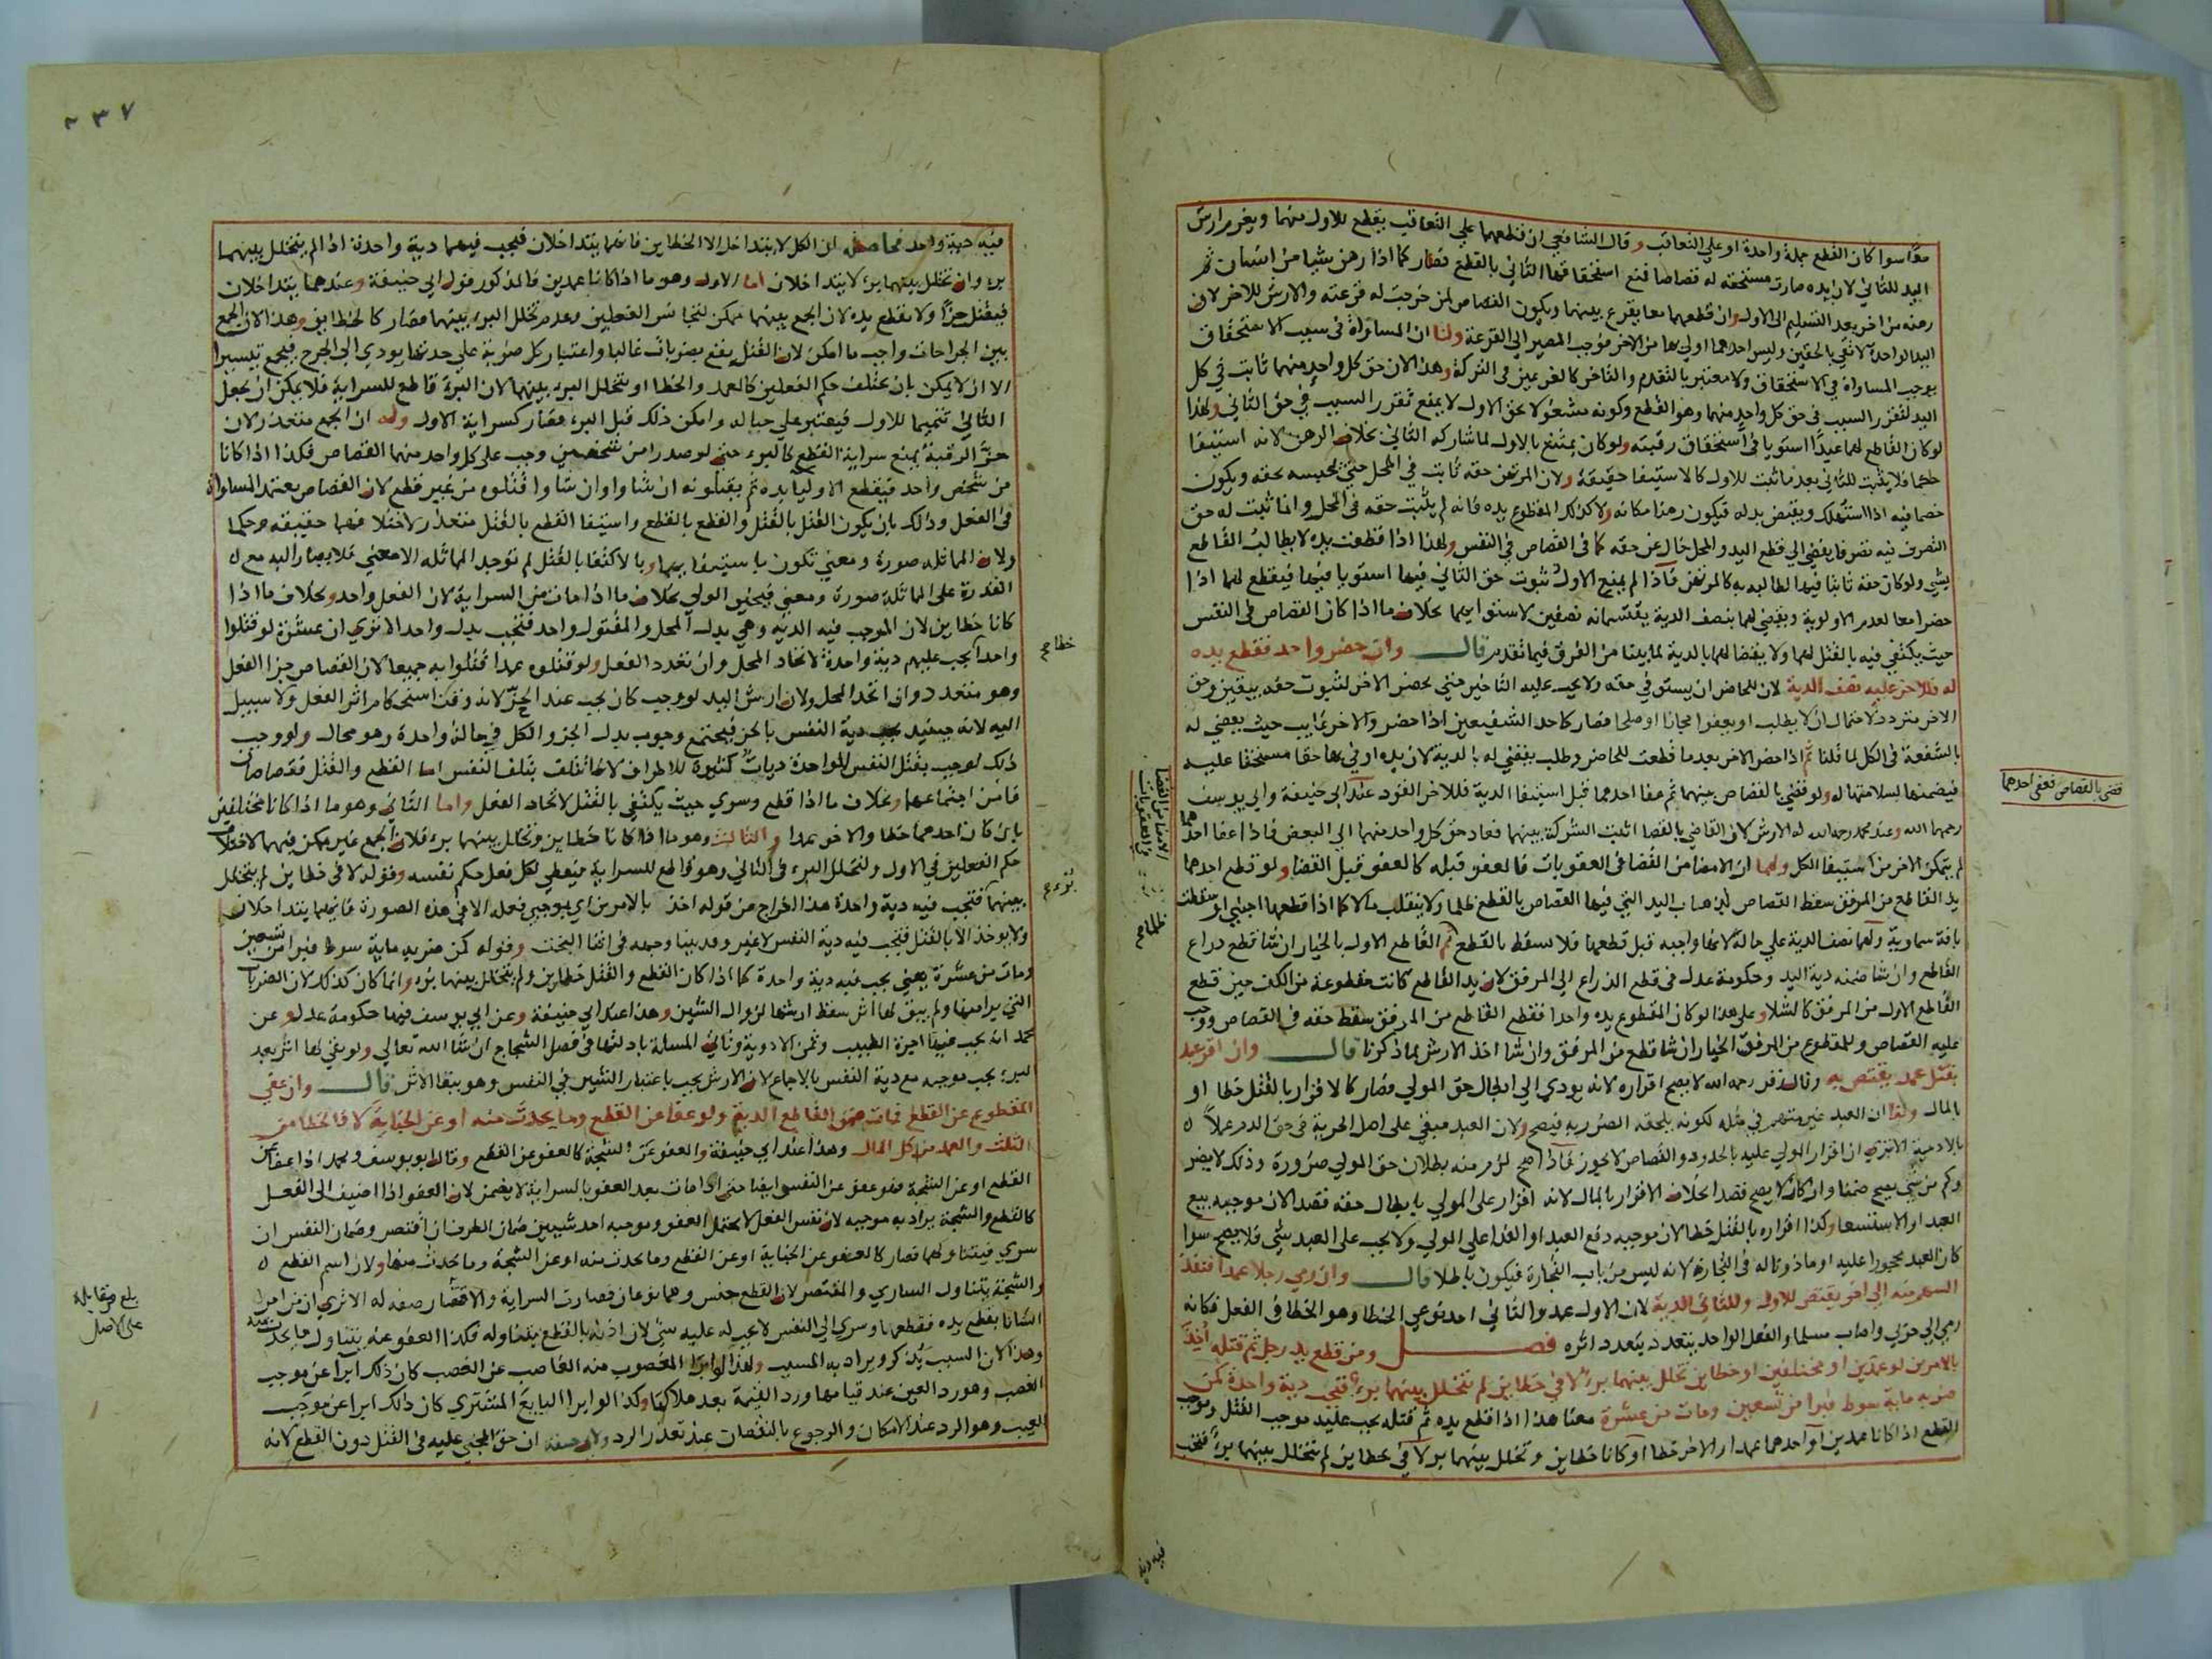 معا سوا كان القطع جملة واحدة او على التعاقب وقال الشافعي ان قطعهما علي التعاقب يقطع للاول منهما ويغرم ارش
اليد للثاني لان يده صارت مستحقه له قصاصا فمنع استحقاقها الثاني بالقطع فصار كما اذا رهن شيا من انسان ثم
رهنه من اخر بعد التسليم الى الاول وان قطعهما معا يقرع بينهما ويكون القصاص لمن خرجت له قرعته والارش للاخر لان
اليد الواحدة لا تفي بالحقين وليس احدهما اولي بها من الاخر فوجب المصير الى القرعة ولنا ان المساواة في سبب الاستحقاق
يوجب المساواة في الاستحقاق ولا معتبر بالتقدم والتاخر كالغريمين في التركة وهذا لان حق كل واحد منهما ثابت في كل
اليد لتقرر السبب في حق كل واحد منهما وهو القطع وكونه مشغولا بحق الاول لا يمنع تقرر السبب في حق الثاني ولهذا
لو كان القاطع لهما عبدا استويا في استحقاق رقبته ولو كان يمتنع بالاول لما شاركه الثاني بخلاف الرهن لانه استيفا
حكما فلا يثبت للثاني بعد ما ثبت للاول كالاستيفا حقيقة ولان المرتهن حقه ثابت في المحل حتى يحبسه بحقه ويكون
خصما فيه اذا استهلك ويقبض بدله فيكون رهنا مكانه ولا كذلك المقطوع يده فانه لم يثبت حقه في المحل وانما ثبت له حق
التصرف فيه تصرفا يفضي الي قطع اليد والمحل خال عن حقه كما في القصاص في النفس ولهذا اذا قطعت يده لا يطالب القاطع
بشي ولو كان حقه ثابتا فيها لطالبه به كالمرتهن فاذا لم يمنع الاول ثبوت حق الثاني فيها استويا فيها فيقطع لهما اذا
حضرا معا لعدم الاولوية ويقضي لهما بنصف الدية يقتسمانه نصفين لاستوايهما بخلاف ما اذا كان القصاص في النفس
حيث يكتفي فيه بالقتل لهما ولا يقضا لهما بالدية لما بينا من الفرق فيما تقدم قال وان حضر واحد فقطع يده
له فللاخر عليه نصف الدية لان للحاضر ان يستوفي حقه ولا يجب عليه التاخير حتي يحضر الاخر لثبوت حقه بيقين وحق
الاخر متردد لاحتمال ان لا يطلب او يعفوا مجانا او صلحا فصار كاحد الشفيعين اذا حضر والاخر غايب حيث يقضي له
بالشفعة في الكل لما قلنا ثم اذا حضر الاخر بعد ما قطعت للحاضر وطلب يقضي له بالدية لان يده اوفي بها حقا مستحقا عليه
فيضمنها لسلامتها له ولو قضي بالقصاص بينهما ثم عفا احدهما قبل استيفا الدية فللاخر القود عند ابي حنيفة وابي يوسف
رحمهما الله وعند محمد رحمه الله له الارش لان القاضي بالقضا اثبت الشركة بينهما فعاد حق كل واحد منهما الي البعض فاذا عفا احدهما
لم يتمكن الاخر من استيفا الكل ولهما ان الامضا من القضا في العقوبات فالعفو قبله كالعفو قبل القضا ولو قطع احدهما
يد القاطع من المرفق سقط القصاص لذهاب اليد التي فيها القصاص بالقطع ظلما ولا ينقلب مالا كما اذا قطعها اجنبي او سقطت
بافة سماوية ولهما نصف الدية علي حاله لانها واجبه قبل قطعها فلا يسقط بالقطع ثم القاطع الاول بالخيار ان شا قطع ذراع
القاطع وان شا ضمنه دية اليد وحكومة عدل في قطع الذراع الي المرفق لان يد القاطع كانت مقطوعة من الكف حين قطع
القاطع الاول من المرفق كالشلا وعلى هذا لو كان المقطوع يده واحدا فقطع القاطع من المرفق سقط حقه في القصاص ووجب
عليه القصاص وللمقطوع من المرفق الخيار ان شا قطع من المرفق وان شا اخذ الارش لما ذكرنا قال وان اقر عبد
بقتل عمد يقتص به وقال زفر رحمه الله لا يصح اقراره لانه يودي الي ابطال حق المولي فصار كالاقرار بالقتل خطا او
بالمال ولنا ان العبد غير متهم في مثله لكونه يلحقه الضرر به فيصح ولان العبد مبقي على اصل الحرية في حق الدم عملا
بالادمية الا ترى ان اقرار المولي عليه بالحدود والقصاص لا يجوز فاذا صح لزم منه بطلان حق المولي ضرورة وذلك لا يضر
وكم من شي يصح ضمنا وان كان لا يصح قصدا بخلاف الاقرار بالمال لانه اقرار على المولي بابطال حقه قصدا لان موجبه بيع
العبد او الاستسعا وكذا اقراره بالقتل خطا لان موجبه دفع العبد او الفدا علي المولي ولا يجب على العبد شي فلا يصح سوا
كان العبد محجورا عليه او ماذونا له في التجارة لانه ليس من باب التجارة فيكون باطلا قال وان رمي رجلا عمدا فنفذ
السهم منه الي اخر يقتص للاول وللثاني الدية لان الاول عمد والثاني احد نوعي الخطا وهو الخطا في الفعل فكانه
رمي الي حربي واصاب مسلما والفعل الواحد يتعدد بتعدد اثره فصل ومن قطع يد رجل ثم قتله اخذ
بالامرين لو عمدين او مختلفين او خطاين تخلل بينهما برء لا في خطاين لم يتخلل بينهما برء فتجب دية واحدة كمن
ضربه ماية سوط فبرا من تسعين ومات من عشرة معنا هذا اذا قطع يده ثم قتله يجب عليه موجب القتل وموجب
القطع اذا كانا عمدين او احدهما عمدا والاخر خطا او كانا خطاين وتخلل بينهما برء لا في خطاين لم يتخلل بينهما برء فتجب
قضى بالقصاص فعفى احدهما
الامضا من القضا
في العقوبات
فيه دية
٢٣٧
فيه دية واحدة فحاصله ان الكل لا يتداخل الا الخطاين فانهما يتداخلان فيجب فيهما دية واحدة اذا لم يتخلل بينهما
برء وان تخلل بينهما برء لا يتداخلان اما الاول وهو ما اذا كانا عمدين فالمذكور قول ابي حنيفة وعندهما يتداخلان
فيقتل حزا ولا يقطع يده لان الجمع بينهما ممكن لتجانس الفعلين وعدم تخلل البرء بينهما فصار كالخطاين وهذا لان الجمع
بين الجراحات واجب ما امكن لان القتل يقع بضربات غالبا واعتبار كل ضربة علي حدتها يودي الي الحرج فيجمع تيسيرا
الا ان لا يمكن بان يختلف حكم الفعلين كالعمد والخطا او يتخلل البرء بينهما لان البرء قاطع للسراية فلا يمكن ان يجعل
الثاني تتميما للاول فيعتبر علي حياله وامكن ذلك قبل البرء فصار كسراية الاول وله ان الجمع متعذر لان
حز الرقبة يمنع سراية القطع كالبرء حتى لو صدرا من شخصين وجب على كل واحد منهما القصاص فكذا اذا كانا
من شخص واحد فيقطع الاوليا يده ثم يقتلونه ان شاوا وان شاوا قتلوه من غير قطع لان القصاص يعتمد المساواة
في الفعل وذلك بان يكون القتل بالقتل والقطع بالقطع واستيفا القطع بالقتل متعذر لاختلافهما حقيقة وحكما
ولان المماثله صورة ومعني تكون باستيفايهما وبالاكتفا بالقتل لم توجد المماثله الا معني فلا يصار اليه مع
القدرة على المماثلة صورة ومعني فيخير الولي بخلاف ما اذا مات من السراية لان الفعل واحد وبخلاف ما اذا
كانا خطاين لان الموجب فيه الدية وهي بدل المحل والمقتول واحد فتجب بدل واحد الا ترى ان عشرة لو قتلوا
واحدا يجب عليهم دية واحدة لاتحاد المحل وان تعدد الفعل ولو قتلوه عمدا قتلوا به جميعا لان القصاص جزا الفعل
وهو متعدد وان اتحد المحل ولان ارش اليد لو وجب كان يجب عند الحز لانه وقت استحكام اثر الفعل ولا سبيل
اليه لانه حينيذ يجب دية النفس بالحز فيجتمع وجوب بدل الجزو الكل في حالة واحدة وهو محال ولو وجب
ذلك لوجب بقتل النفس الواحدة ديات كثيرة للاطراف لانها تتلف بتلف النفس اما القطع والقتل قصاصان
فامن اجتماعهما وبخلاف ما اذا قطع وسري حيث يكتفي بالقتل لاتحاد الفعل واما الثاني وهو ما اذا كانا مختلفين
بان كان احدهما خطا والاخر عمدا والثالث وهو ما اذا كانا خطاين وتخلل بينهما برء فلان الجمع غير ممكن فيهما لاختلاف
حكم الفعلين في الاول ولتخلل البرء في الثاني وهو قاطع للسراية فيعطي لكل فعل حكم نفسه وقوله لا في خطاين لم يتخلل
بينهما فتجب فيه دية واحدة هذا اخراج من قوله اخذ بالامرين اي بموجبي فعله الا في هذه الصورة فانهما يتداخلان
ولا يوخذ الا بالقتل فتجب فيه دية النفس لا غير وقد بينا وجهه في اثنا البحث وقوله كمن ضربه ماية سوط فبرا من تسعين
ومات من عشرة يعني يجب فيه دية واحدة كما اذا كان القطع والقتل خطاين ولم يتخلل بينهما برء وانما كان كذلك لان الضربات
التي برا منها ولم يبق لها اثر سقط ارشها لزوال الشين وهذا عند ابي حنيفة وعن ابي يوسف فيها حكومة عدل وعن
محمد انه يجب فيها اجرة الطبيب وثمن الادوية وتاتي المسالة بادلتها في فصل الشجاج ان شا الله تعالي ولو بقي لها اثر بعد
البرء يجب موجبه مع دية النفس بالاجماع لان الارش يجب باعتبار الشين في النفس وهو ببقا الاثر قال وان عفي
المقطوع عن القطع فمات ضمن القاطع الدية ولو عفا عن القطع وما يحدث منه او عن الجناية لا فالخطا من
الثلث والعمد من كل المال وهذا عند ابي حنيفة والعفو عن الشجة كالعفو عن القطع وقال ابو يوسف ومحمد اذا عفا عن
القطع او عن الشجة فهو عفو عن النفس ايضا حتى اذا مات بعد العفو بالسراية لا يضمن لان العفو اذا اضيف الى الفعل
كالقطع والشجة يراد به موجبه لان نفس الفعل لا يحتمل العفو وموجبه احد شيين ضمان الطرف ان اقتصر وضمان النفس ان
سري فيتناولهما فصار كالعفو عن الجناية او عن القطع وما يحدث منه او عن الشجة وما يحدث منها ولان اسم القطع
والشجة يتناول الساري والمقتصر لان القطع جنس وهما نوعان فصارت السراية والاقتصار صفه له الا ترى ان من امر
انسانا بقطع يده فقطعها وسرى الي النفس لا يجب له عليه شي لان اذنه بالقطع يتناوله فكذا العفو عنه يتناول ما يحدث منه
وهذا لان السبب يذكر ويراد به المسبب ولهذا لو ابرا المغصوب منه الغاصب عن الغصب كان ذلك ابرا عن موجب
الغصب وهو رد العين عند قيامها ورد القيمة بعد هلاكها وكذا لو ابرا البايع المشتري كان ذلك ابرا عن موجب
العيب وهو الرد عند الامكان والرجوع بالنقصان عند تعذر الرد ولابي حنيفة ان حق المجني عليه في القتل دون القطع لانه
بلغ مقابلة
على الاصل